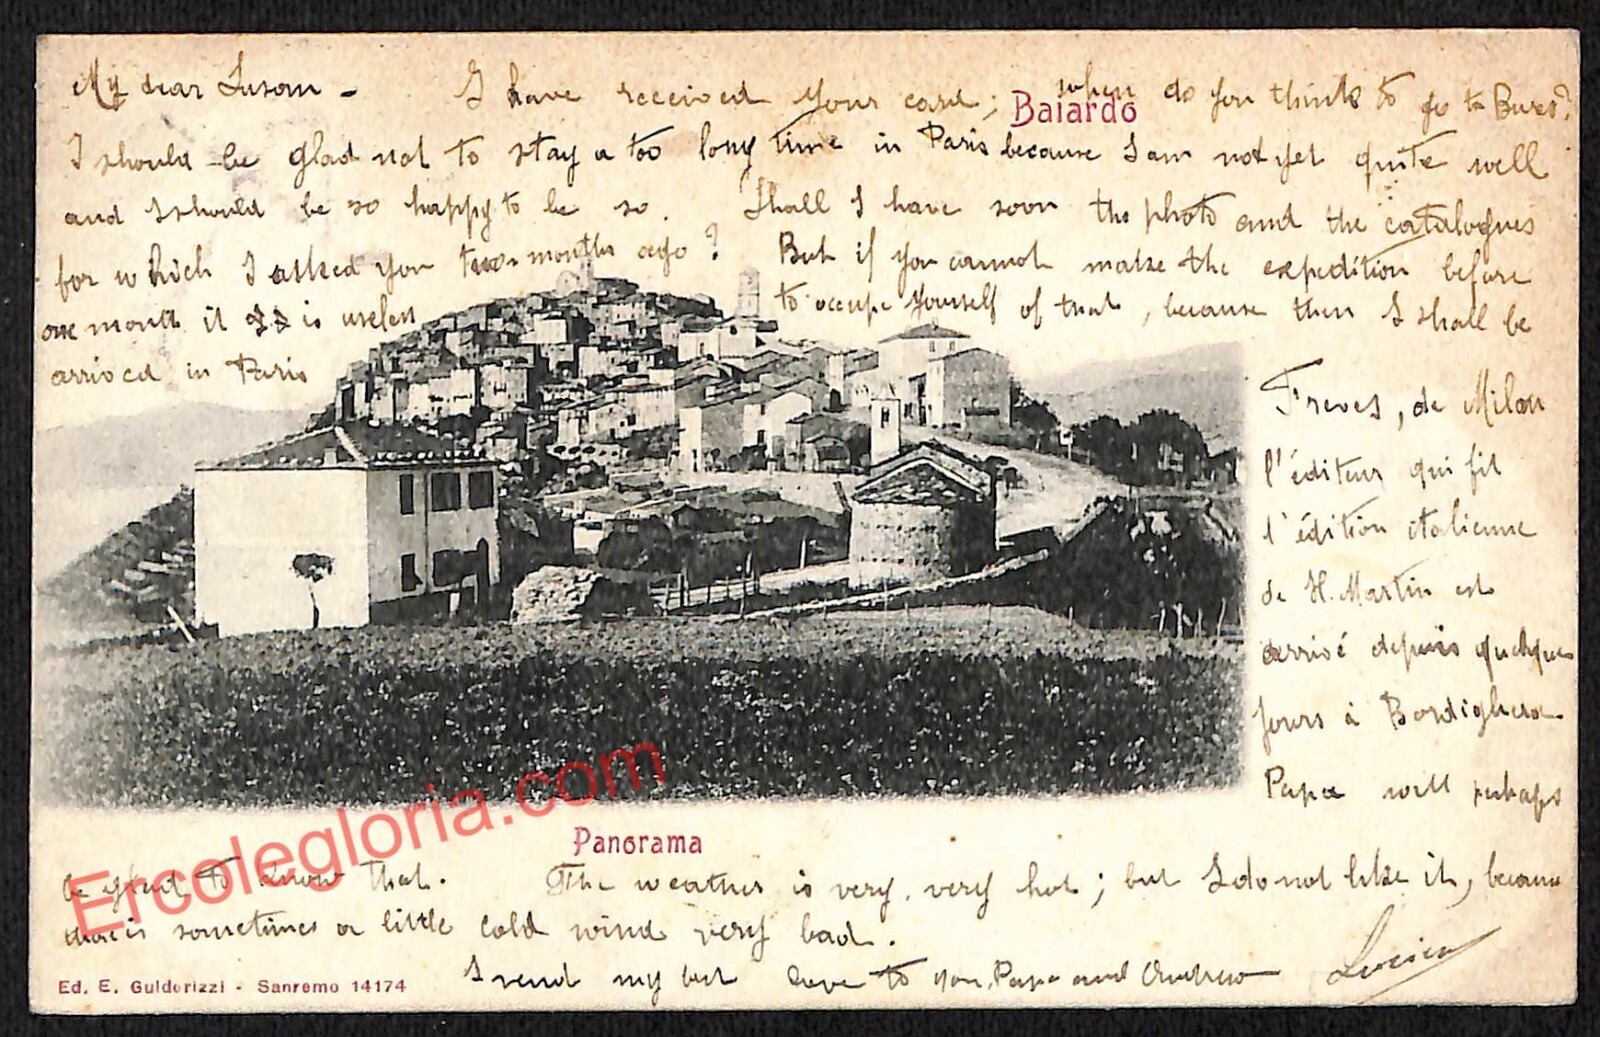 My dear Susan - I have received your card; when do you think to go to Bures?
Baiardo
I should be glad not to stay a too long time in Paris because I am not yet quite well
and I should be so happy to be so. Shall I have soon the photo and the catalogues
for which I asked you two months ago? But if you cannot make the expedition before
one month it is useless to occupy yourself of that, because then I shall be
arrived in Paris
Treves, de Milan
l'éditeur qui fit
l'édition italienne
de H. Martin est
arrivé depuis quelques
jours à Bordighera
Papa will perhaps
Panorama
be glad to know that. The weather is very, very hot; but I do not like it, because
there is sometimes a little cold wind very bad.
I send my best love to you, Papa and Andrew Lucien
Ed. E. Guiderizzi - Sanremo 14174
Ercolegloria.com